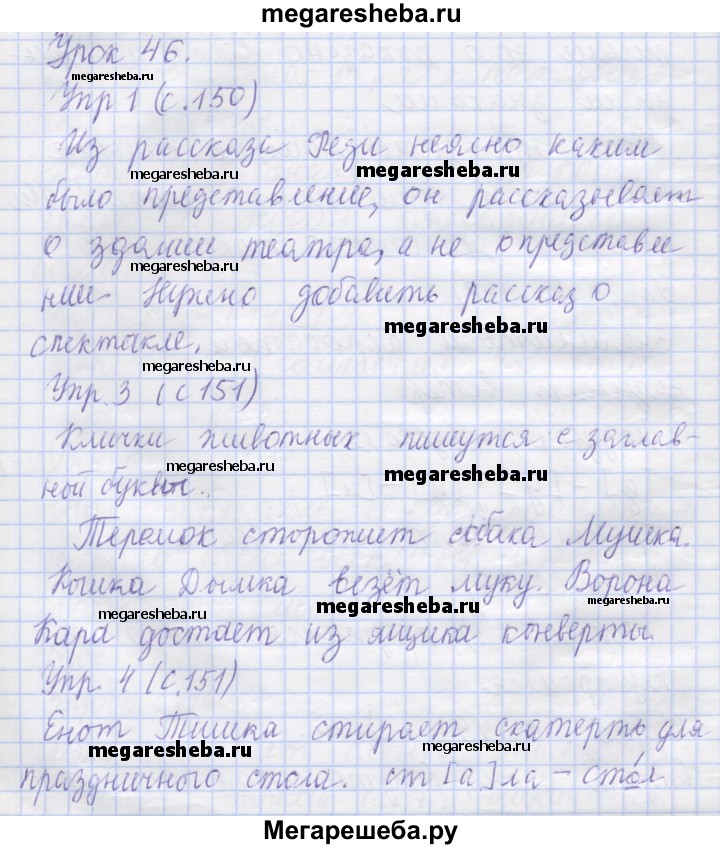 megaresheba.ru
Урок 46.
megaresheba.ru
Упр 1 (с.150)
Из рассказа Феди неясно каким
megaresheba.ru
megaresheba.ru
было представление, он рассказывает
о здании театра, а не о представле
megaresheba.ru
нии Нужно добавить рассказ о
megaresheba.ru
спектакле.
megaresheba.ru
Упр. 3 (с 151)
Клички животных пишутся с заглав-
megaresheba.ru
megaresheba.ru
ной буквы.
Теремок сторожит собака Мушка.
Кошка Дымка везёт муку. Ворона
megaresheba.ru
megaresheba.ru
megaresheba.ru
Кара достает из ящика конверты.
Упр. 4 (с.151)
Енот Тишка стирает скатерть для
megaresheba.ru
megaresheba.ru
праздничного стола. ст[а]ла – сто́л
Мегарешеба.ру